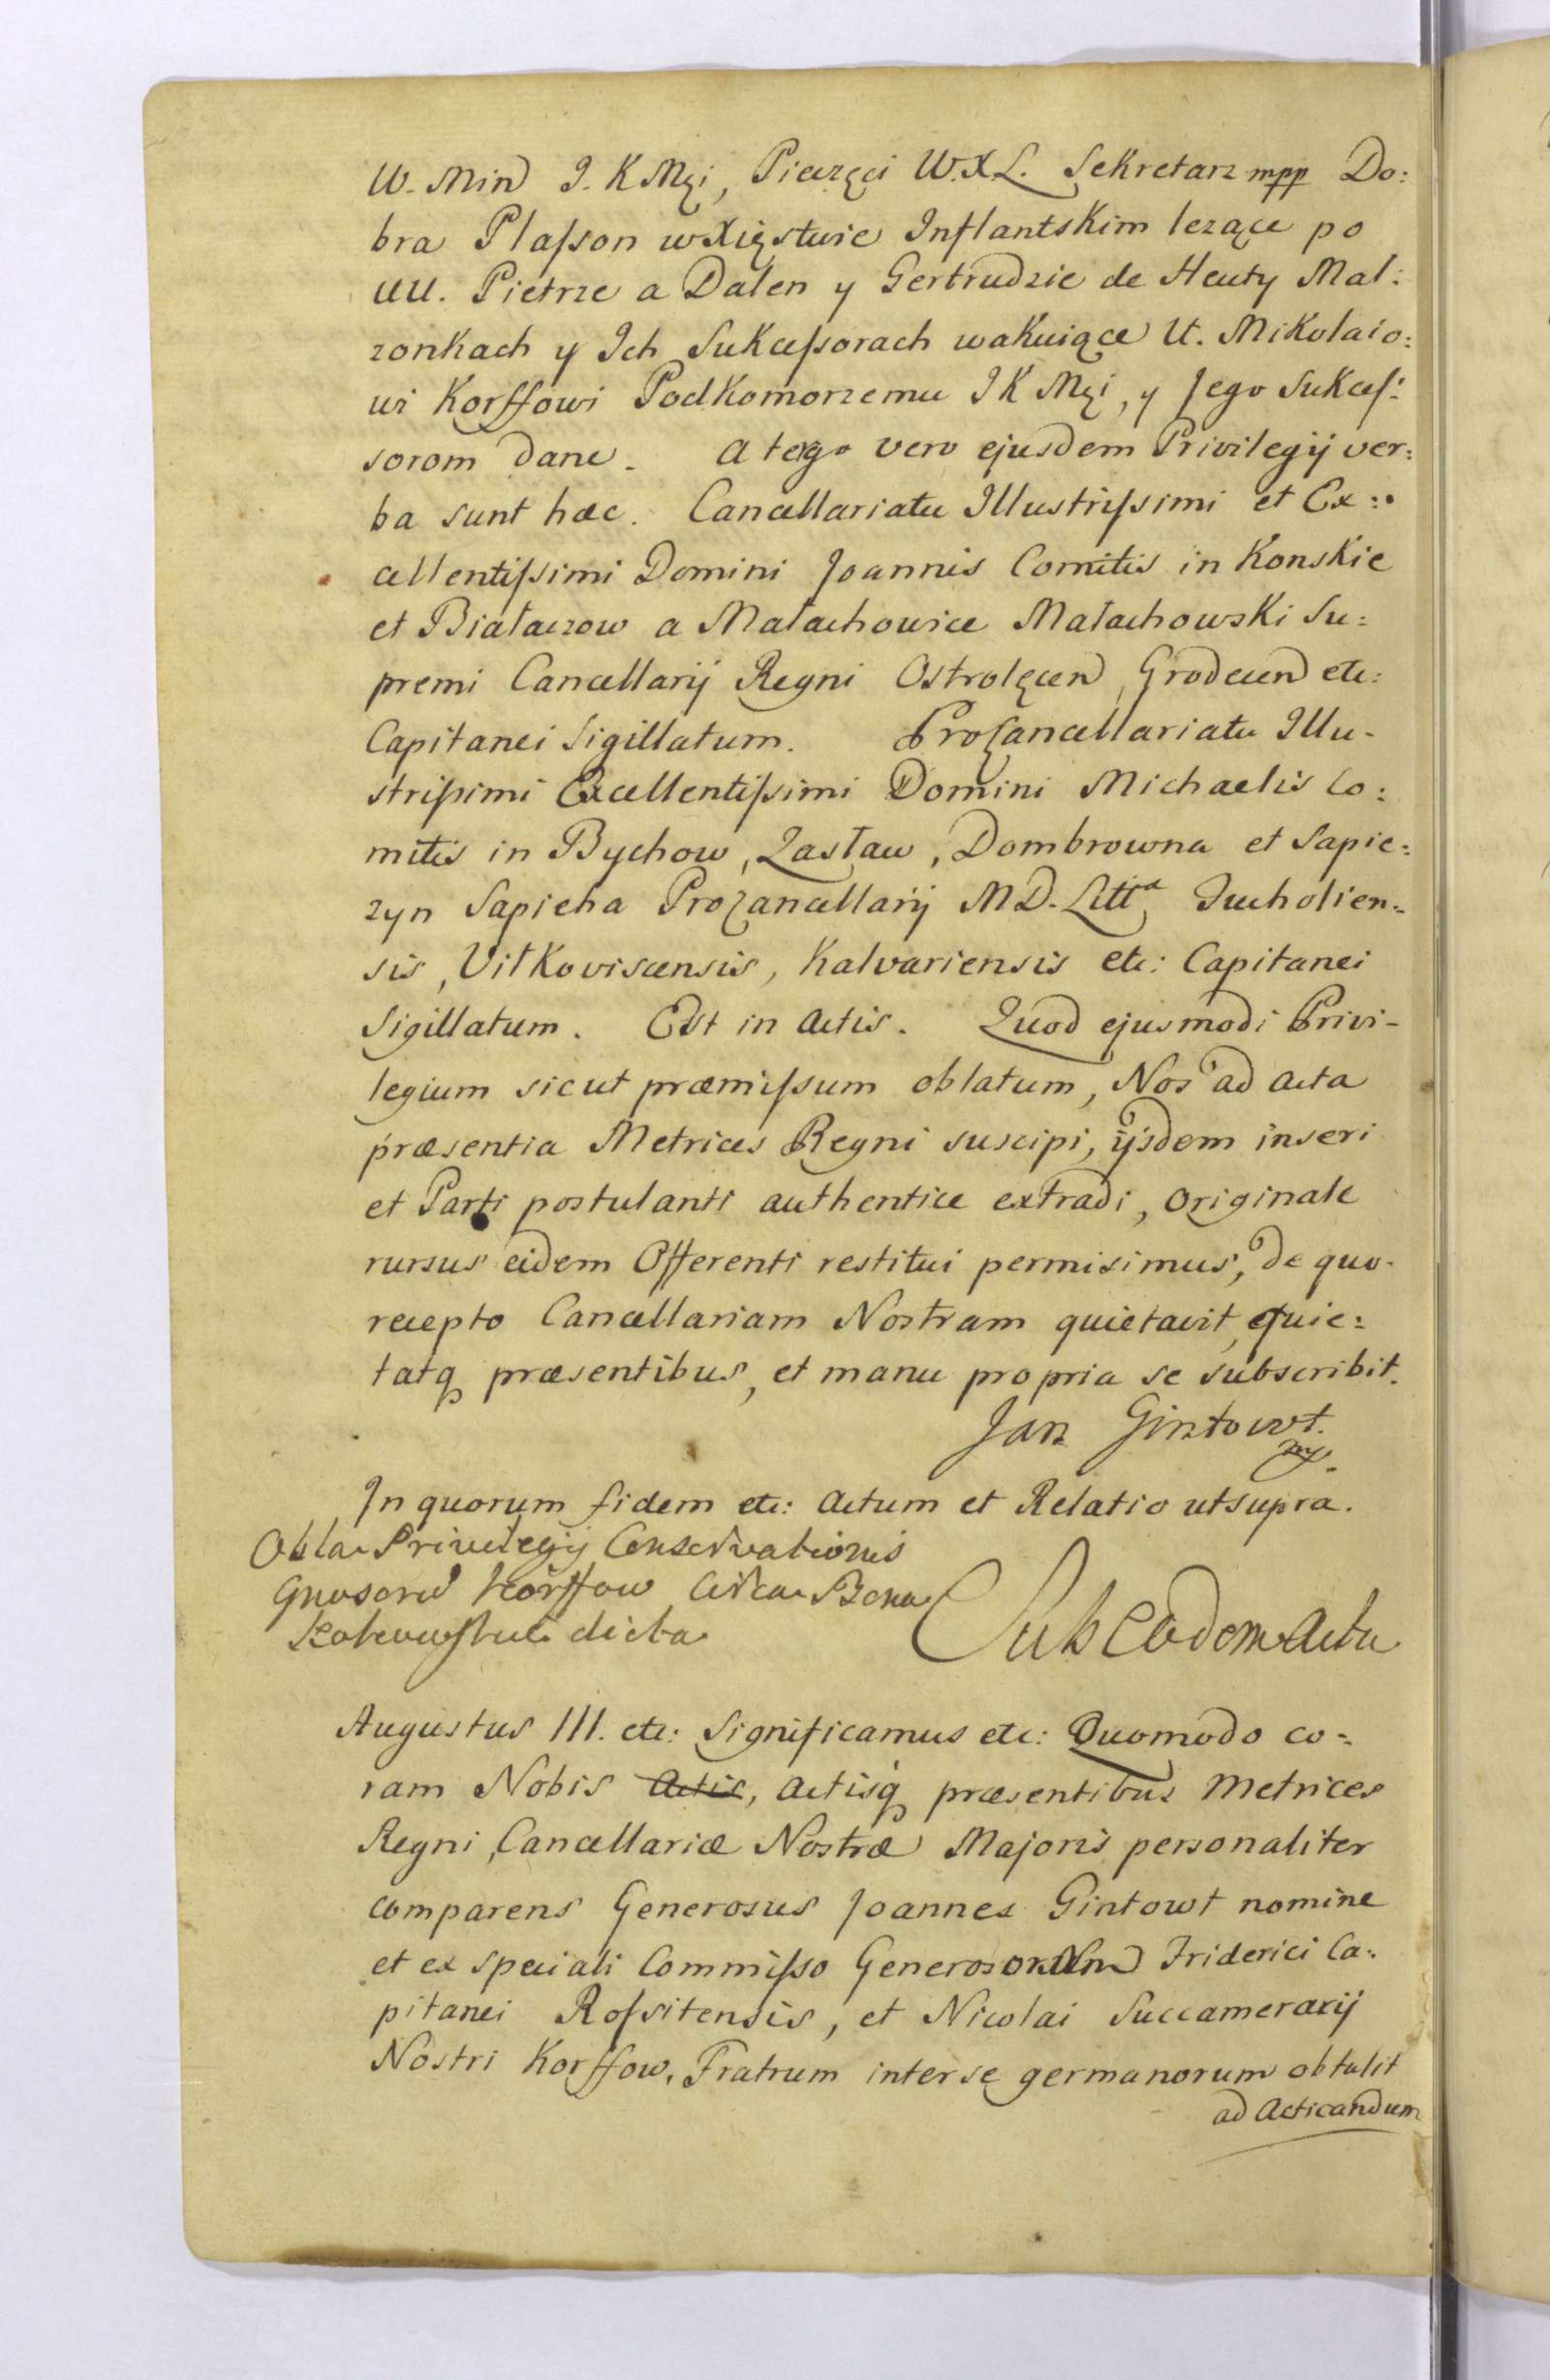 W. Min J. K Mçi, Pieczęci W.X.L. Sekretarz mpp Do:
bra Plaſson w Xięstwie Inflantskim lezące po
UU. Pietrze a Dalen y Gertrudzie de Heuty Mal:
zonkach y Ich Sukceſsorach wakuiące U. Mikolaio:
wi Korffowi Podkomorzemu J K Mçi, y Jego Sukceſ:
sorom dane. A tergo vero ejusdem Privilegij ver:
ba sunt hæc. Cancellariatu Illustriſsimi et Ex:
cellentiſsimi Domini Joannis Comitis in Konskie
et Białaczow a Małachowice Małachowski Su:
premi Cancellarij Regni Ostrolęcen, Grodecen etc:
Capitanei Sigillatum. ProCancellariatu Illu-
striſsimi Excellentiſsimi Domini Michaelis Co:
mitis in Bychow, Zasław, Dombrowna et Sapie:
zyn Sapieha ProCancellarij M D. Littᵃ Tucholien:
sis, Vilkoviscensis, Kalvariensis etc: Capitanei
Sigillatum. Est in Actis. Quod ejusmodi Privi-
legium sicut præmiſsum oblatum, Nos ad Acta
præsentia Metrices Regni suscipi, ijsdem inseri
et Parti postulanti authentice extradi, Originale
rursus eidem Offerenti restitui permisimus, de quo
recepto Cancellariam Nostram quietavit, quie:
tatq præsentibus, et manu propria se subscribit.
Jan Gintowt.
mp.
In quorum fidem etc: Actum et Relatio ut supra.
Obla Privilegij Conservationis
Gnosoru Korffow circa Bona
dicta
Sub Eodem Actu
Augustus III. etc: Significamus etc: Quomodo co:
ram Nobis Actis, Actisq præsentibus Metrices
Regni Cancellariæ Nostræ Majoris personaliter
comparens Generosus Joannes Gintowt nomine
et ex speciali Commiſso Generosorum Friderici Ca:
pitanei Roſsitensis, et Nicolai Succamerarij
Nostri Korffow, Fratrum inter se germanorum obtulit
ad Acticandum